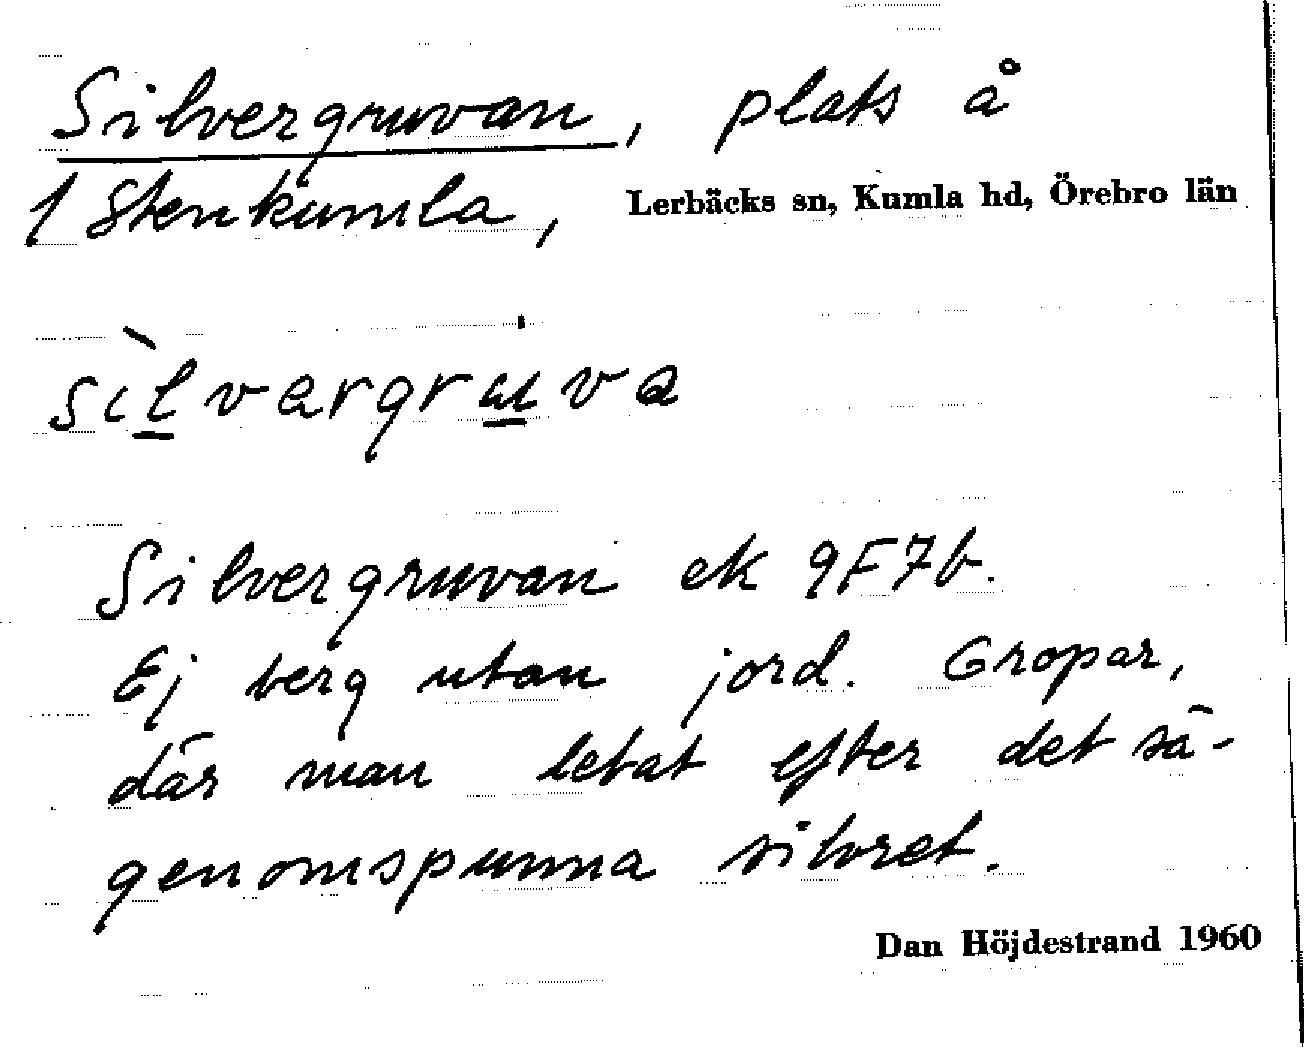 Silvergruvan, plats å
1 Stenkumla, Lerbäcks sn, Kumla hd, Örebro län
sìlvargruva
Silvergruvan ek 9F7b.
Ej berg utan jord. Gropar,
där man letat efter det sä-
genomspunna silvret.
Dan Höjdestrand 1960